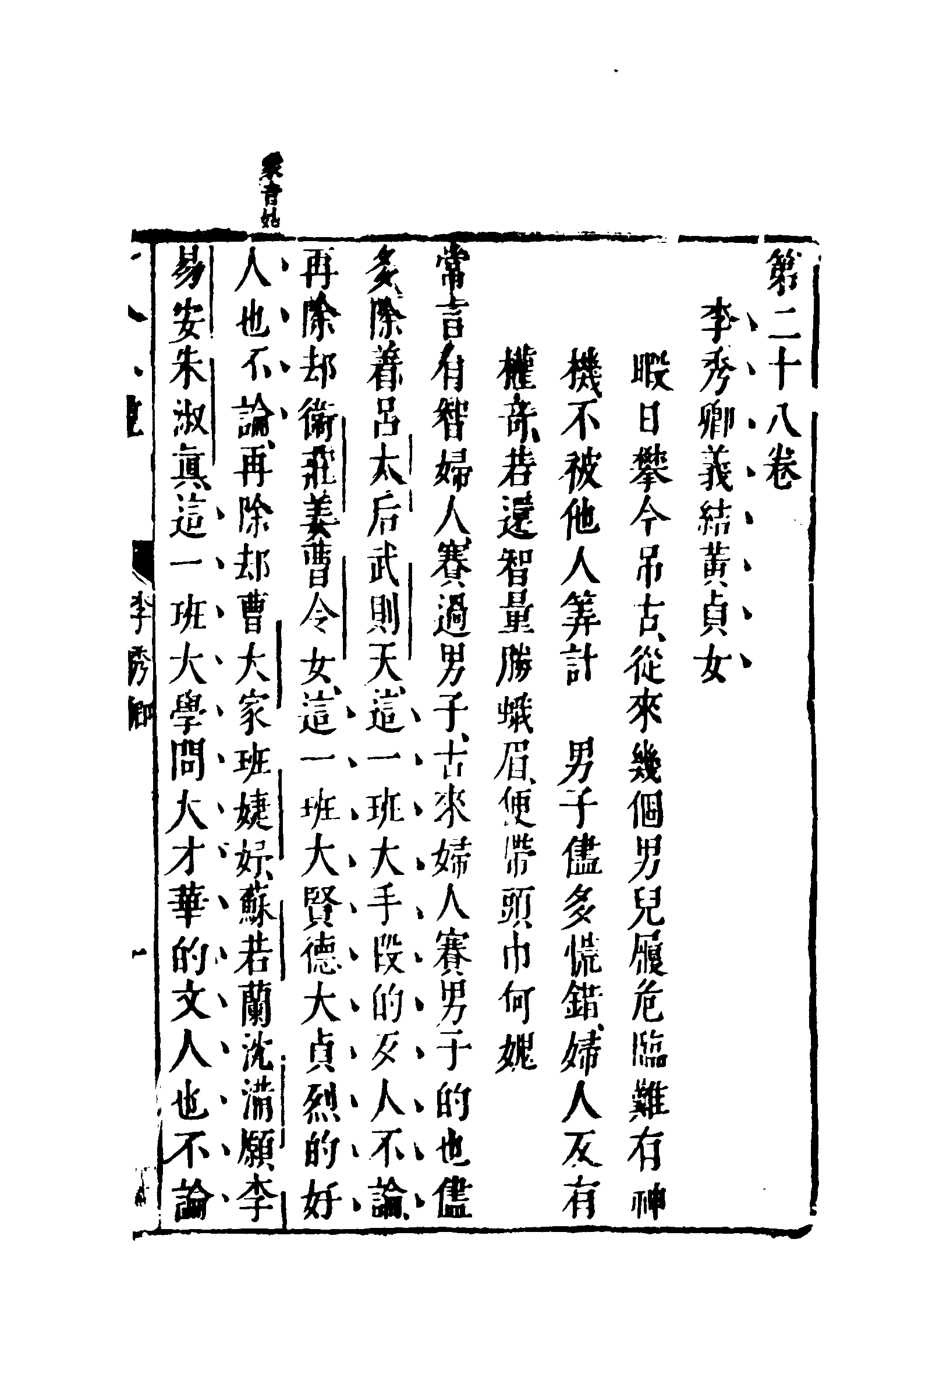 第二十八卷
李秀卿義結黃貞女
暇日攀今吊古、從來幾個男兒履危臨難有神
機、不被他人筭計　男子儘多慌錯、婦人反有
權奇、若還智量勝蛾眉、便帶頭巾何媿
常言有智婦人、賽過男子、古來婦人賽男子的也儘
多、除着呂太后武則天、這一班大手段的歹人不論、
再除却衛莊姜曹令女、這一班大賢德大貞烈的好
人也不論、再除却曹大家班婕妤、蘇若蘭沈滿願李
易安朱淑真、這一班大學問大才華的文人也不論
李秀卿
一